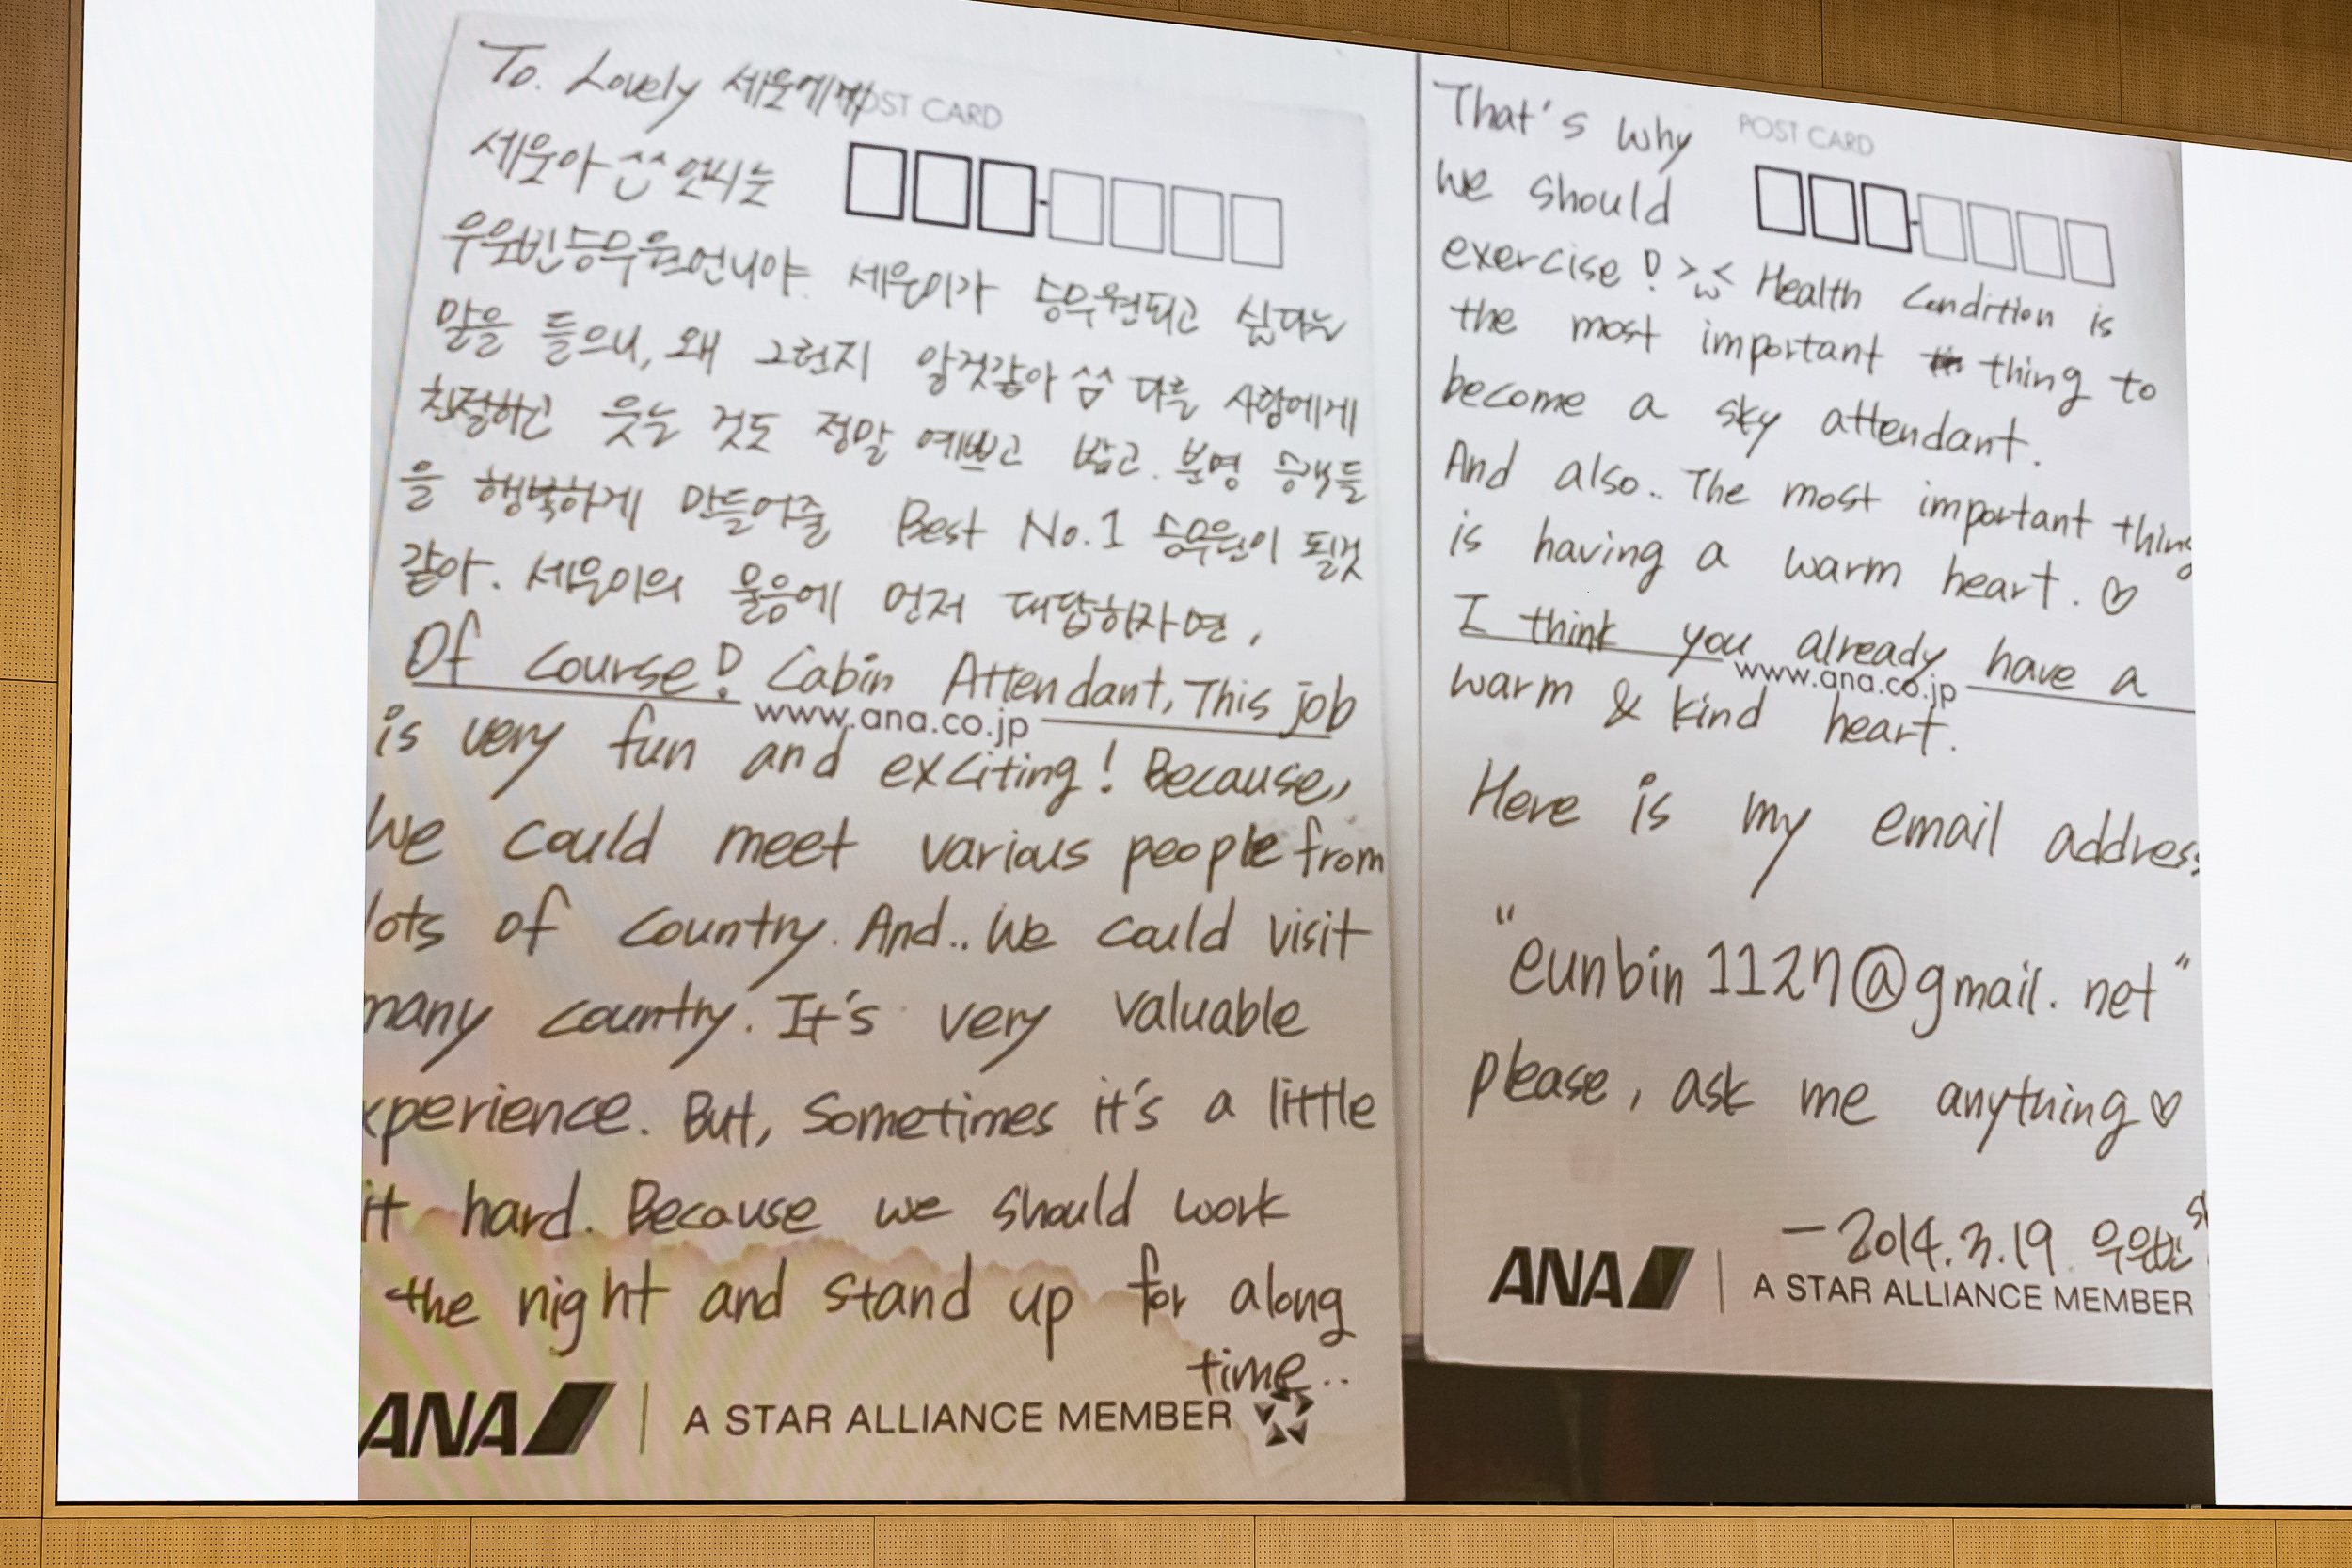 To. Lovely 세운에게
POST CARD
세운아 ^^ 언니는
우은빈승무원언니야. 세운이가 승무원되고 싶다는
말을 들으니, 왜 그런지 알것같아 ^^ 다른 사람에게
친절하고 웃는 것도 정말 예쁘고 밝고. 분명 승객들
을 행복하게 만들어줄 Best No.1 승무원이 될것
같아. 세운이의 물음에 먼저 대답하자면,
Of course! Cabin Attendant, This job
www.ana.co.jp
is very fun and exciting! Because,
We could meet various people from
lots of country. And.. We could visit
many country. It's very valuable
xperience. But, Sometimes it's a little
it hard. Because we should work
the night and stand up for along
time..
ANA
A STAR ALLIANCE MEMBER
That's why
POST CARD
we should
exercise! >ω< Health Condition is
the most important thing to
become a sky attendant.
And also.. The most important thing
is having a warm heart. ♡
I think you already have a
www.ana.co.jp
warm & kind heart.
Here is my email address
"eunbin1127@gmail.net"
please, ask me anything♡
- 2014.3.19. 우은빈
ANA
A STAR ALLIANCE MEMBER